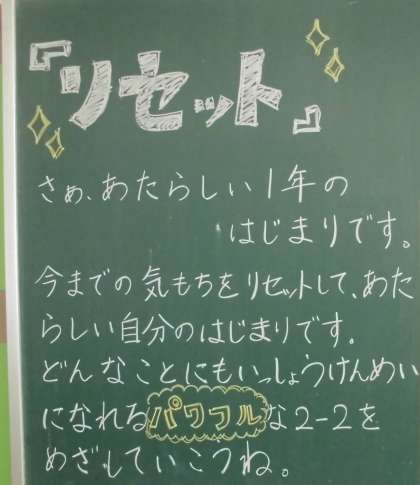 『リセット』
さぁ、あたらしい1年の
はじまりです。
今までの気もちをリセットして、あた
らしい自分のはじまりです。
どんなことにもいっしょうけんめい
になれるパワフルな2-2を
めざしていこうね。